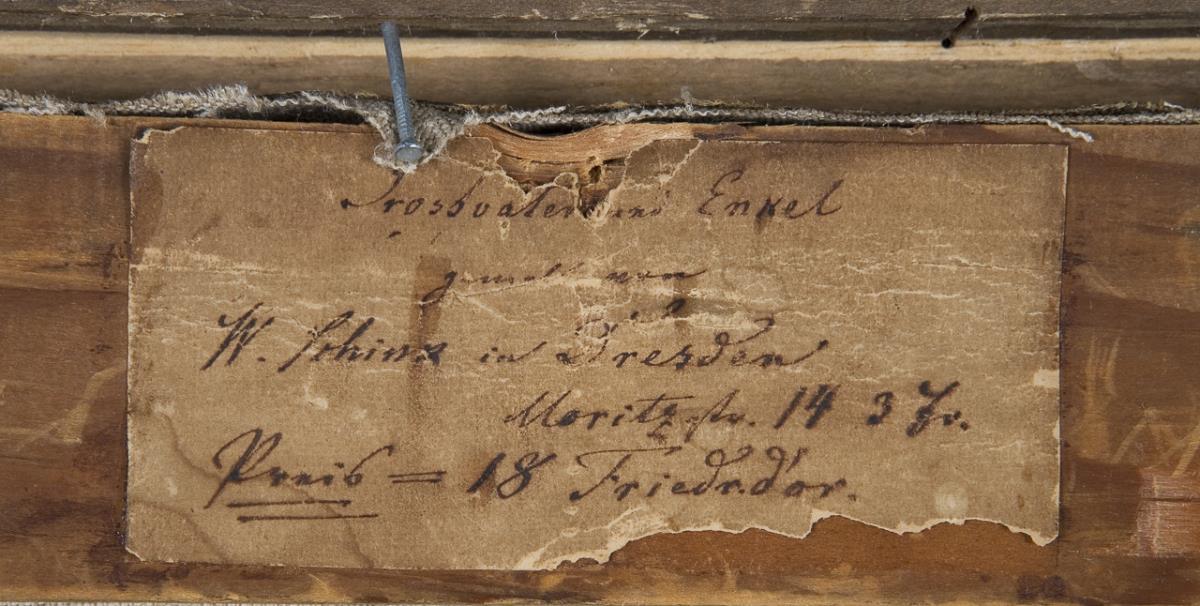 Grossvater und Enkel
gemalt von
W. Schinz in Dresden
Moritzstr. 14 3 Tr.
Preis = 18 Friedr.d'or.